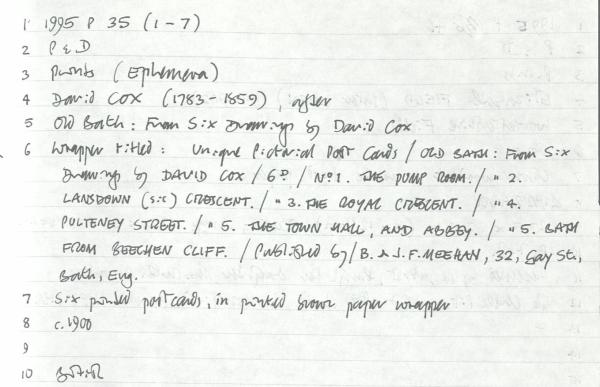 1 1995 P 35 (1-7)
2 P & D
3 Prints (Ephemera)
4 David COX (1783-1859), after
5 Old Bath: From Six Drawings by David Cox
6 Wrapper titled: Unique Pictorial Post Cards / OLD BATH: From Six
Drawings by DAVID COX / 6D / No 1. THE PUMP ROOM. / " 2.
LANSDOWN (sic) CRESCENT. / " 3. THE ROYAL CRESCENT. / " 4.
PULTENEY STREET. / " 5. THE TOWN HALL, AND ABBEY. / " 5. BATH
FROM BEECHEN CLIFF. / Published by / B. & J. F. MEEHAN, 32, Gay St.,
Bath, Eng.
7 Six printed postcards, in printed brown paper wrapper
8 c.1900
9
10